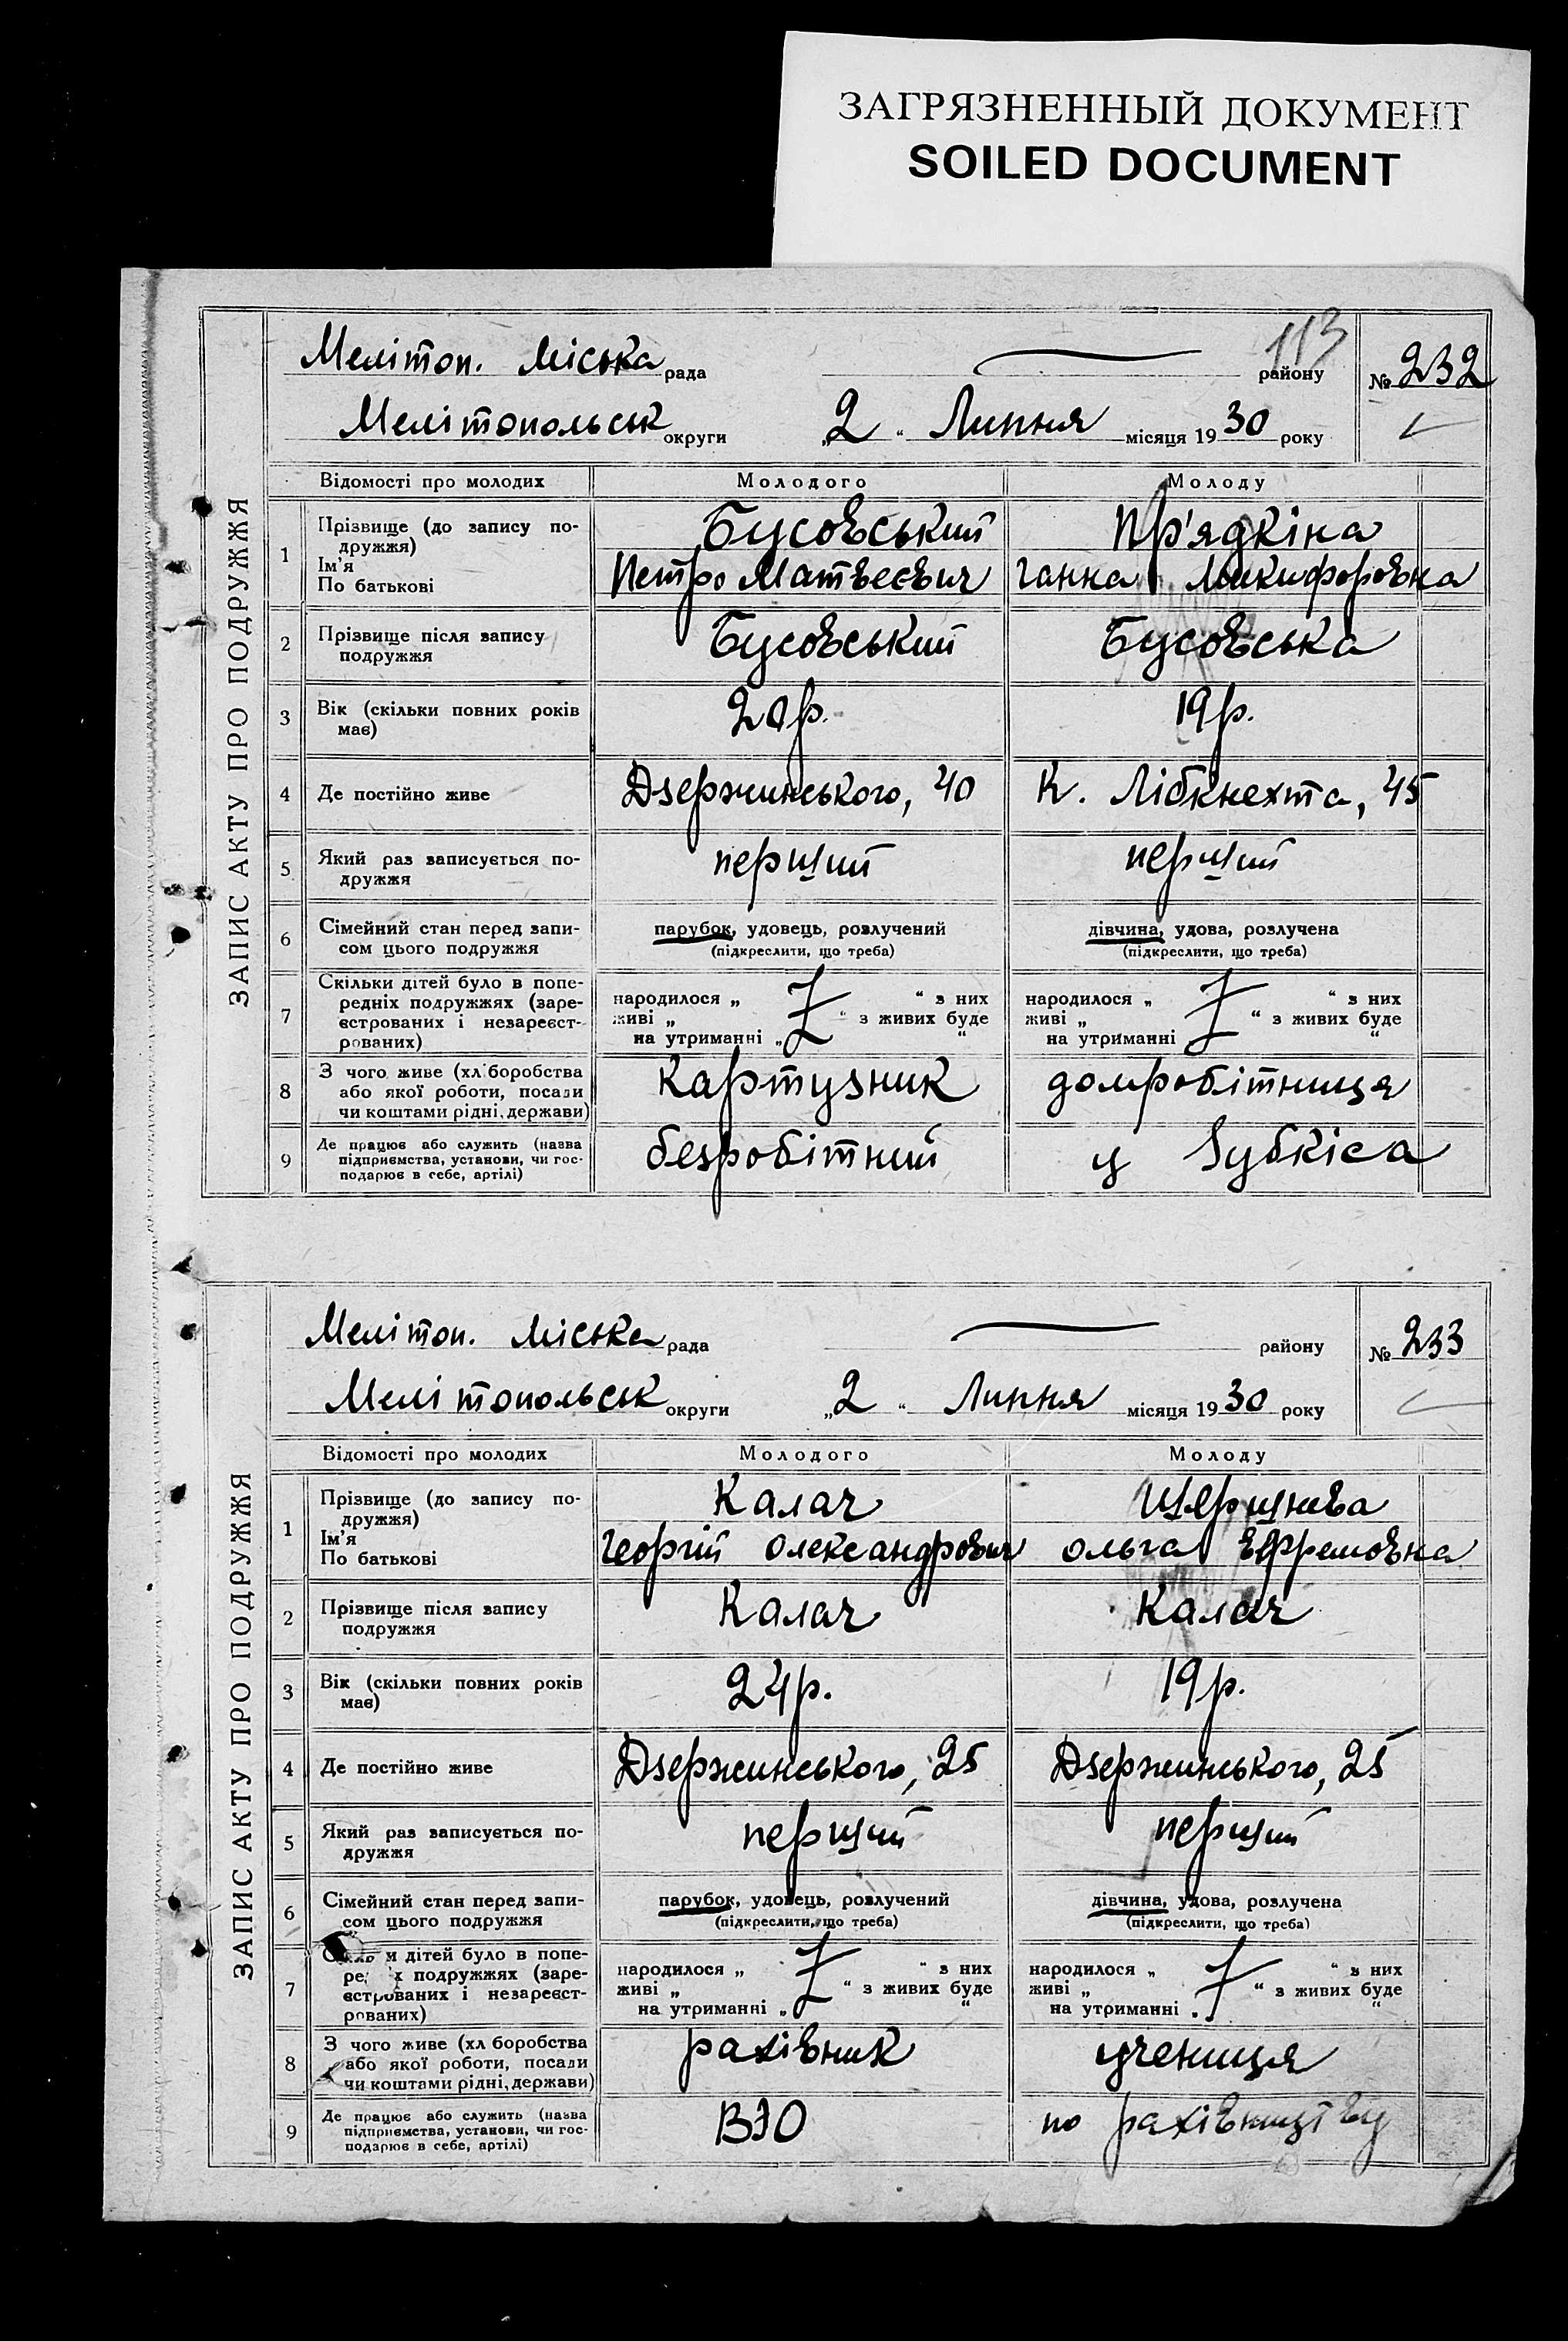 ЗАГРЯЗНЕННЫЙ ДОКУМЕНТ
SOILED DOCUMENT
113
ЗАПИС АКТУ ПРО ПОДРУЖЖЯ
Мелітоп. міська рада району № 232
Мелітопольськ округи „2“ Липня місяця 1930 року
Відомості про молодих Молодого Молоду
1 Прізвище (до запису по- Бусовський Пр'ядкіна
дружжя)
Ім'я Петро Матвеєвич Ганна Микифоровна
По батькові
2 Прізвище після запису Бусовський Бусовська
подружжя
3 Вік (скільки повних років 20 р. 19 р.
має)
4 Де постійно живе Дзержинського, 40 К. Лібкнехта, 45
5 Який раз записується по- перший перший
дружжя
6 Сімейний стан перед запи- парубок, удовець, розлучений дівчина, удова, розлучена
сом цього подружжя (підкреслити, що треба) (підкреслити, що треба)
7 Скільки дітей було в попе-
редніх подружжях (заре- народилося „ “ з них народилося „ “ з них
єстрованих і незареєст- живі „ “ з живих буде живі „ “ з живих буде
рованих) на утриманні „ “ на утриманні “
8 З чого живе (хліборобства Картузник домробітниця
або якої роботи, посади
чи коштами рідні, держави)
9 Де працює або служить (назва безробітний у Зубкіса
підприємства, установи, чи гос-
подарює в себе, артілі)
ЗАПИС АКТУ ПРО ПОДРУЖЖЯ
Мелітоп. міська рада району № 233
Мелітопольськ округи „2“ Липня місяця 1930 року
Відомості про молодих Молодого Молоду
1 Прізвище (до запису по- Калач
дружжя)
Ім'я Георгій Олександрович Ольга Ефремовна
По батькові
2 Прізвище після запису Калач Калач
подружжя
3 Вік (скільки повних років 24 р. 19 р.
має)
4 Де постійно живе Дзержинського, 25 Дзержинського, 25
5 Який раз записується по- перший перший
дружжя
6 Сімейний стан перед запи- парубок, удовець, розлучений дівчина, удова, розлучена
сом цього подружжя (підкреслити, що треба) (підкреслити, що треба)
7 дітей було в попе-
подружжях (заре- народилося „ “ з них народилося „ “ з них
єстрованих і незареєст- живі „ “ з живих буде живі „ “ з живих буде
рованих) на утриманні „ “ на утриманні „ “
8 З чого живе (хліборобства рахівник учениця
або якої роботи, посади
чи коштами рідні, держави)
9 Де працює або служить (назва ВЗО по рахівництву
підприємства, установи, чи гос-
подарює в себе, артілі)